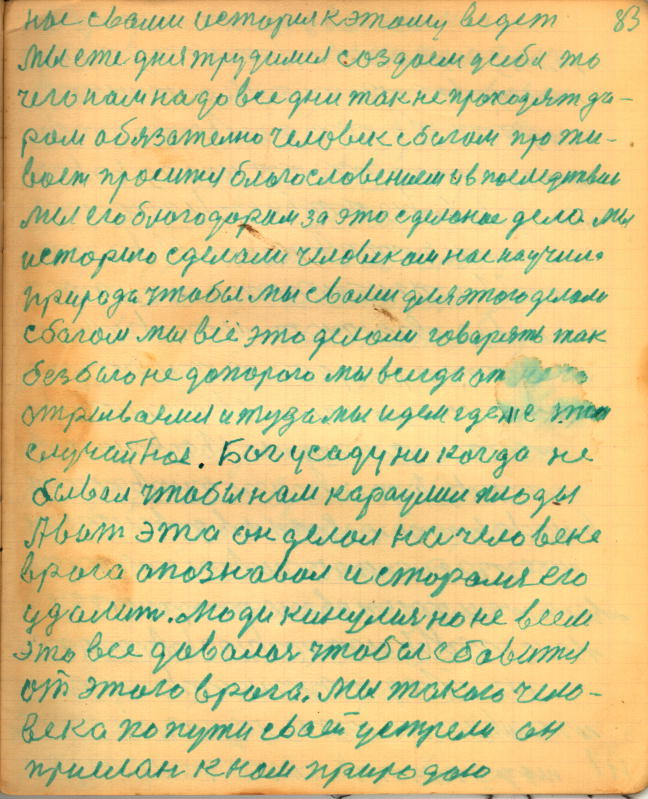 83
нас свами история к этому ведет
мы эте дня трудимся создаем дсебя то
чего нам надо все дни так не проходят да-
ром обязателно человек сбагом прожи-
вает просится благословением и в последствии
мы его благодарим за это сделоное дела мы
историю сделали человеком нас научила
природа чтобы мы свами для этого делали
сбагом мы все это делоли говарять так
без бало не до порого мы всегда от
отрываемся итуда мы идем где же это
случайное. Бог усаду никогда не
бывал чтобы нам караулил плоды
А вот эта он делал на человеке
врага опознавал и старался его
удалить. Люди кинулися но не всем
это все довалася чтобы сбавится
от этого врага. Мы такого чело-
века по пути своей устрели он
прислан к нам природаю